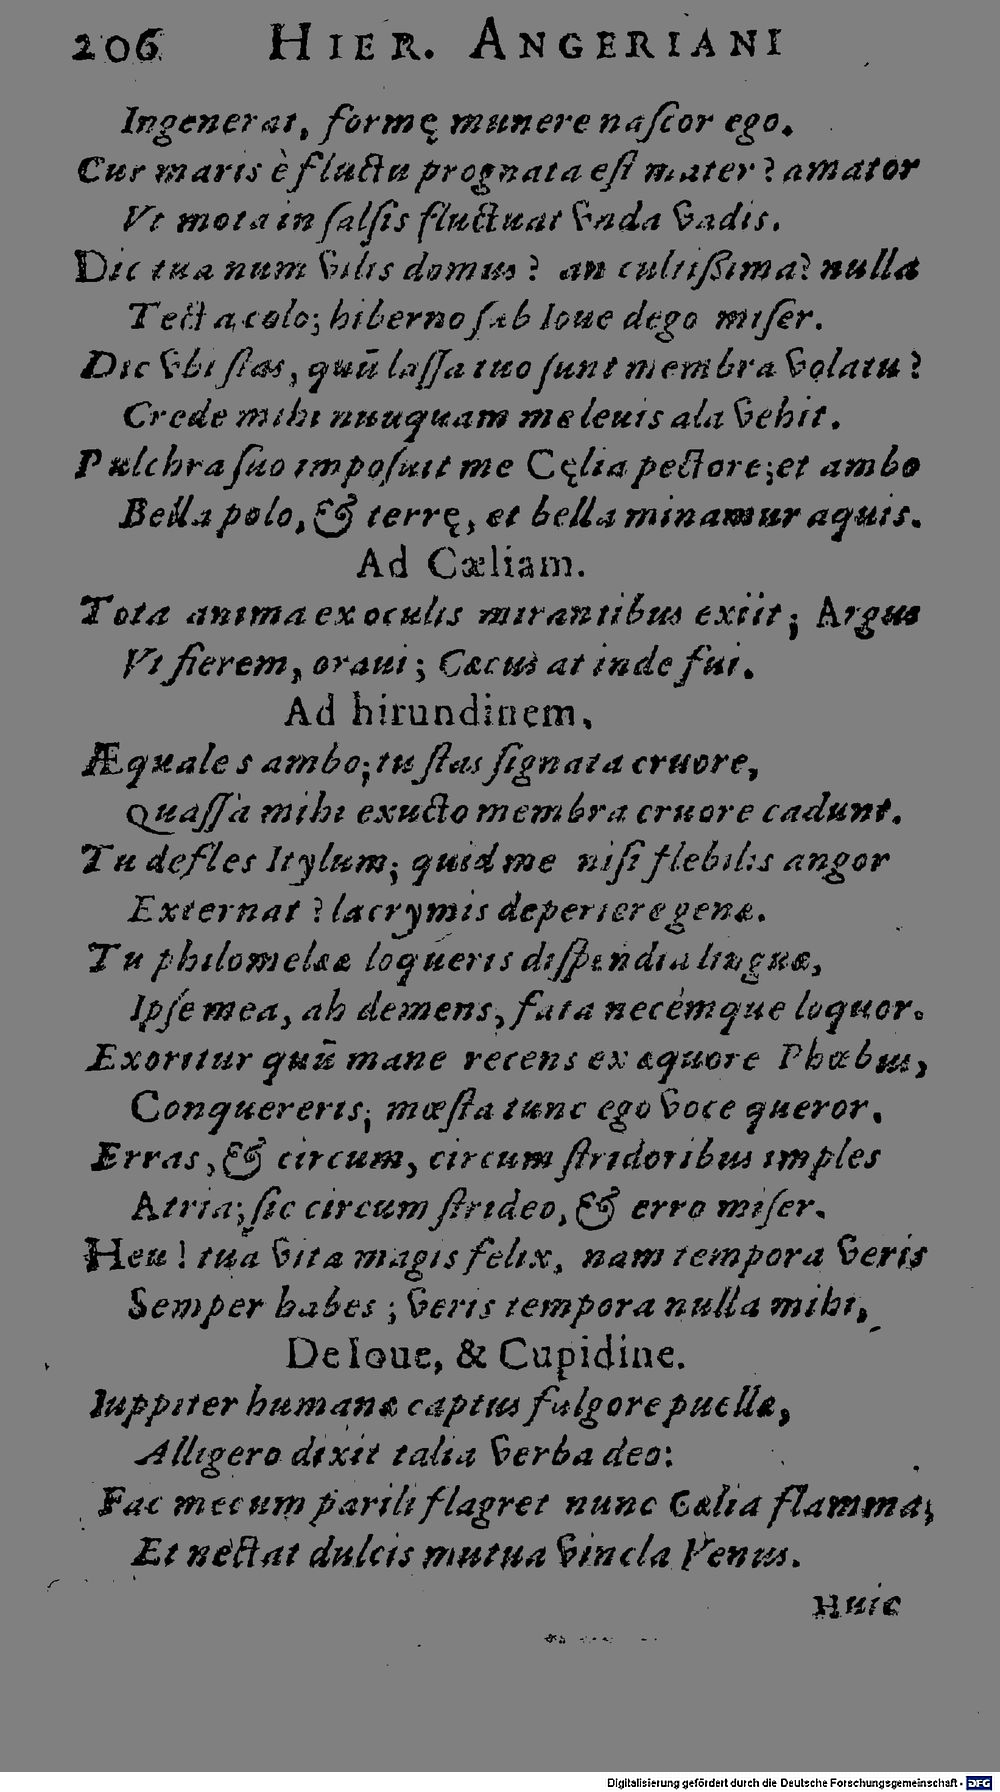 206 HIER. ANGERIANI
Ingenerat, formę munere naſcor ego.
Cur maris è fluctu prognata eſt mater? amator
Vt mota in ſalſis fluctuat vnda vadis.
Dic tua num vilis domus? an cultiſsima? nulla
Tecta colo; hiberno ſub Ioue dego miſer.
Dic vbi ſtas, quū laſſa tuo ſunt membra volatu?
Crede mihi nuuquam me leuis ala vehit.
Pulchra ſuo impoſuit me Cęlia pectore; et ambo
Bella polo, & terrę, et bella minamur aquis.
Ad Cæliam.
Tota anima ex oculis mirantibus exiit; Argus
Vt fierem, oraui; Cæcus at inde fui.
Ad hirundinem.
Æquales ambo; tu ſtas ſignata cruore,
Quaſſa mihi exucto membra cruore cadunt.
Tu defles Itylum; quid me niſi flebilis angor
Externat? lacrymis deperiere genæ.
Tu philomelææ loqueris diſpendia linguæ,
Ipſe mea, ah demens, fata necémque loquor.
Exoritur quū mane recens ex æquore Phœbus,
Conquereris; mœſta tunc ego voce queror.
Erras, & circum, circum ſtridoribus imples
Atria; ſic circum ſtrideo, & erro miſer.
Heu! tua vita magis felix, nam tempora veris
Semper habes; veris tempora nulla mihi,
De Ioue, & Cupidine.
Iuppiter humanæ captus fulgore puellæ,
Alligero dixit talia verba deo:
Fac mecum parili flagret nunc Cælia flamma;
Et nectat dulcis mutua vincla Venus.
Huic
Digitalisierung gefördert durch die Deutsche Forschungsgemeinschaft - DFG